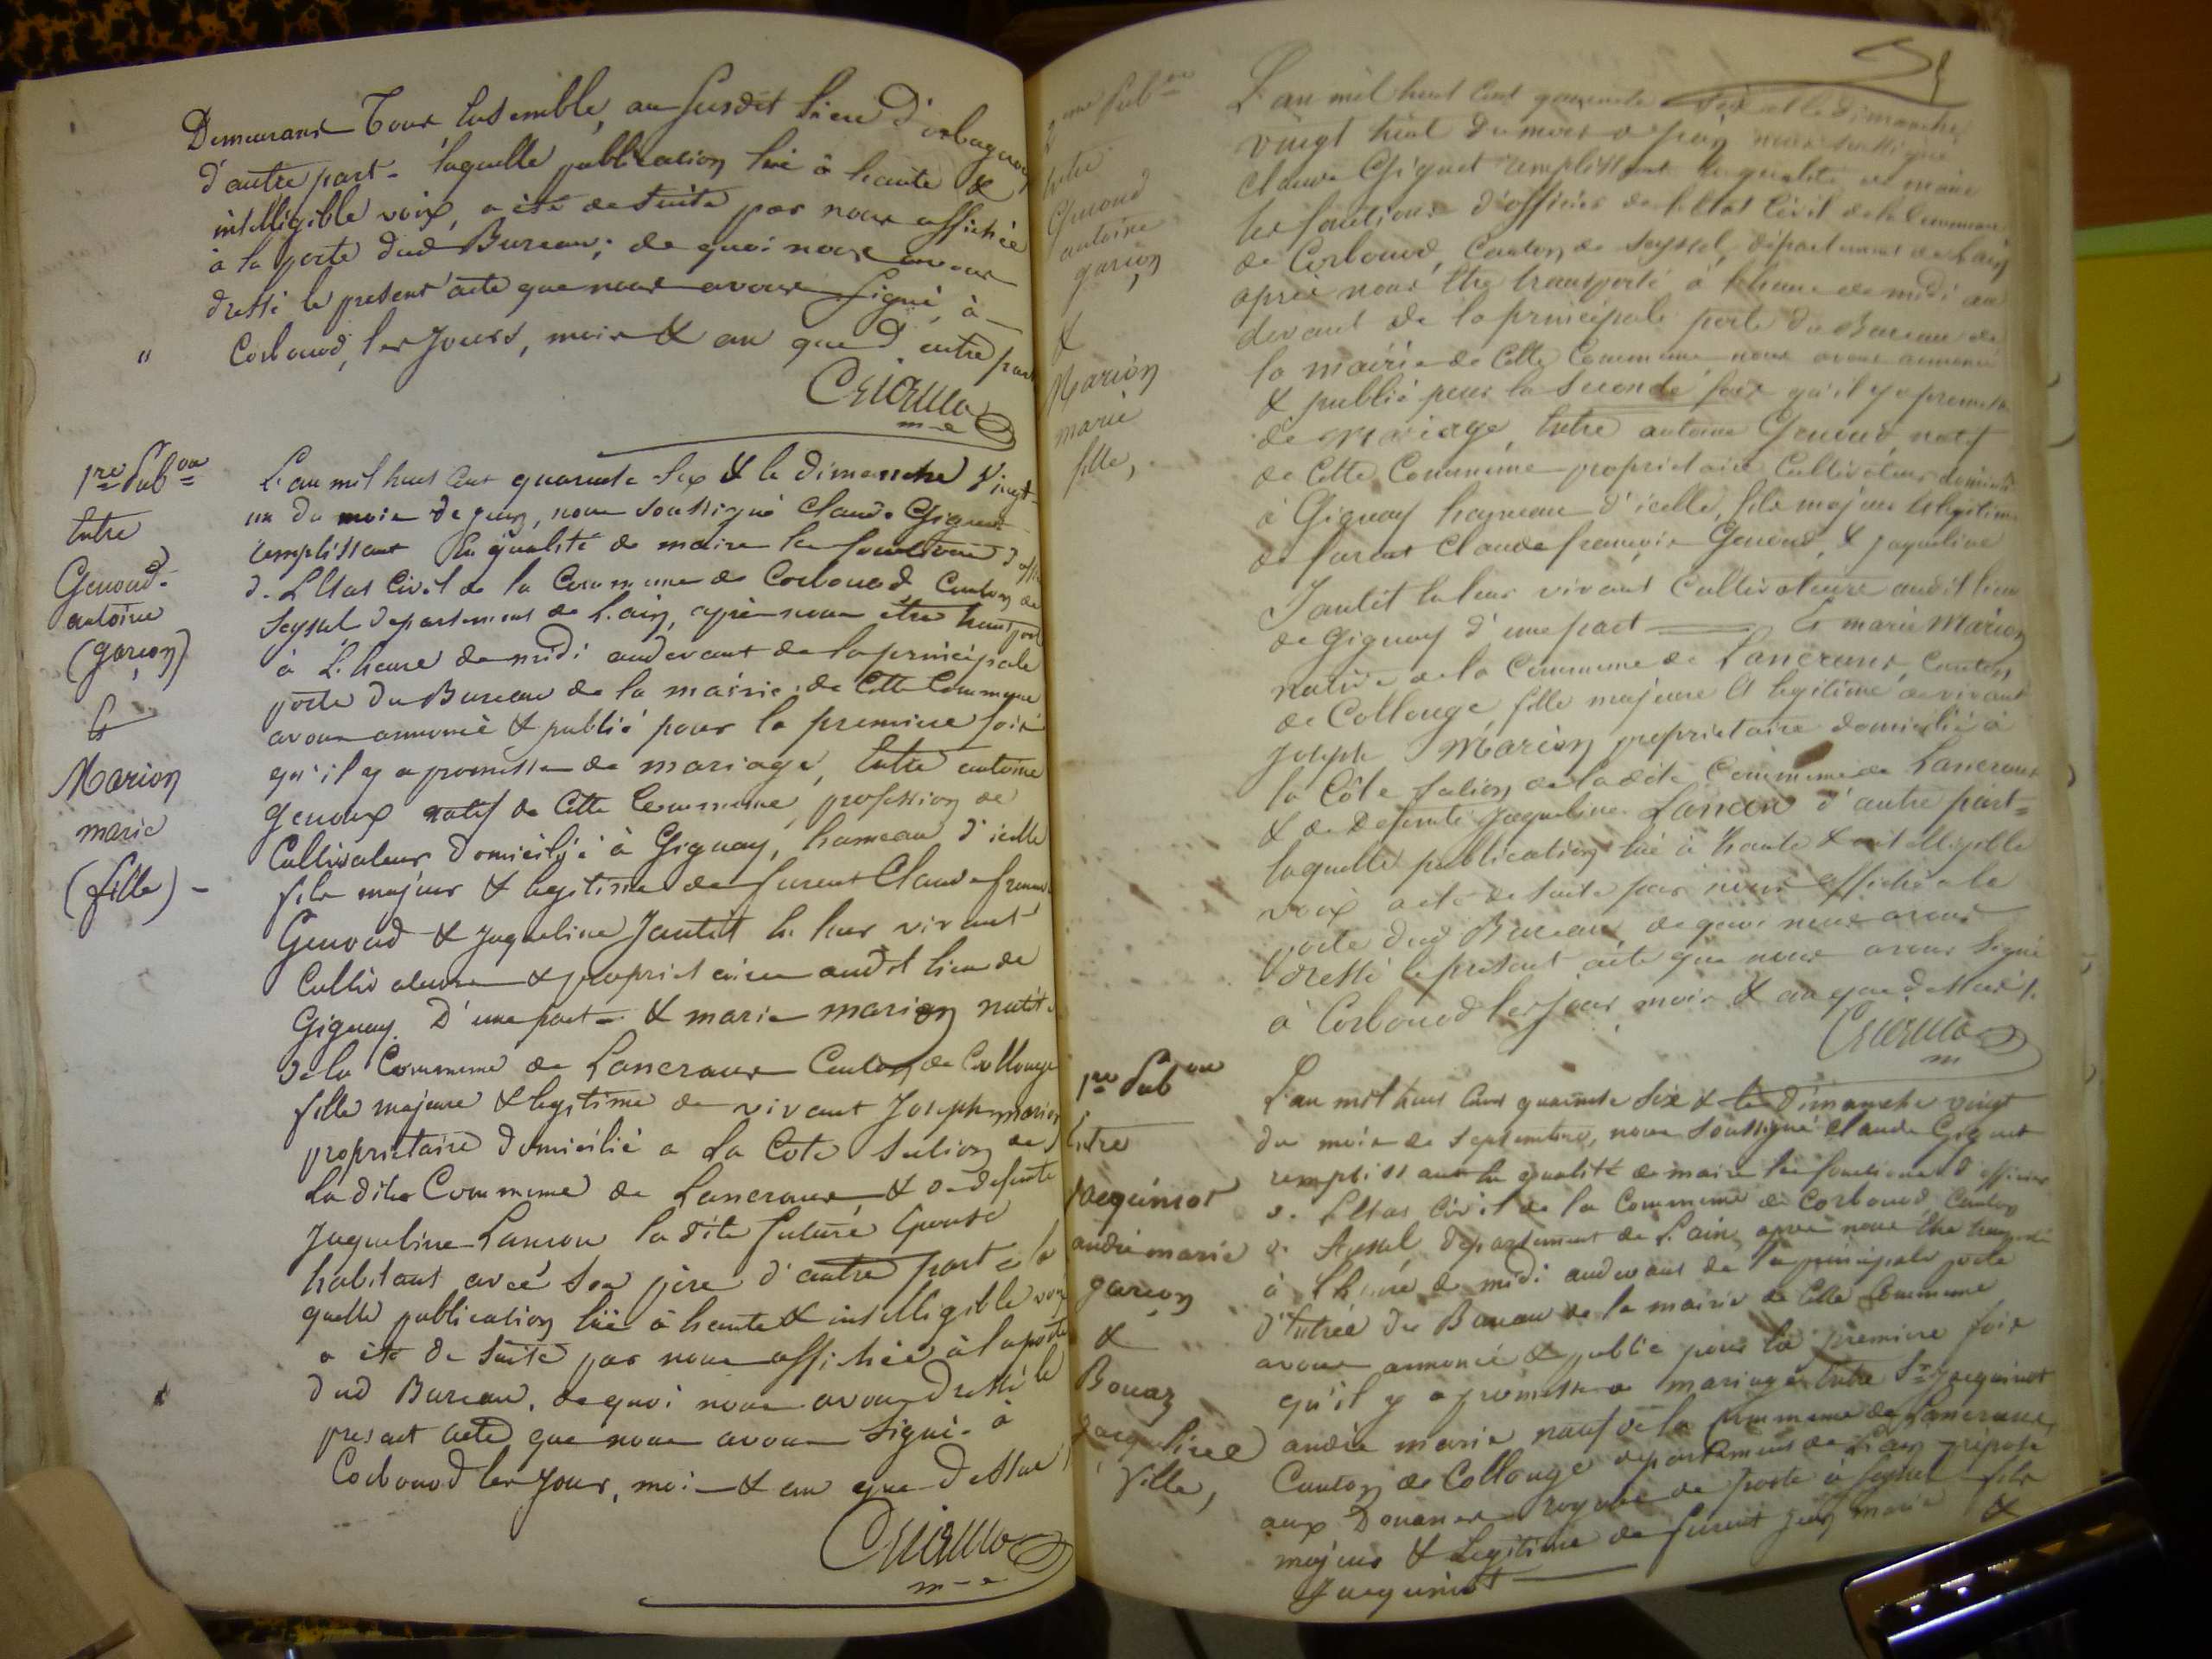 Demeurant Tous Ensemble, au susdit lieu d'orbagnoux
d'autre part - laquelle publication lue à haute &
intelligible voix, a été de suite par nous affichée
à la porte dud Bureau; de quoi nous avons
dressé le present acte que nous avons signé, à
Corbonod, les Jours, mois & an que d'autre part
1re Pubon
Entre
Genoud
antoine
(garçon)
Et
Marion
marie
(fille) -
L'an mil huit cent quarante six & le dimanche vingt
un du mois de juin, nous soussigné Claude Giguet
remplissant En qualité de maire les fonctions d'off
de L'Etat Civil de la Commune de Corbonod Canton de
Seyssel departement de L'ain, après nous être transporté
à L'heure de midi audevant de la principale
porte du Bureau de la mairie de Cette Commune
avons annoncé & publié pour la premiere fois
qu'il y a promesse de mariage, Entre antoine
genoux natif de Cette Commune, profession de
Cultivateur domicilié à Gignay, hameau d'icelle
fils majeur & legitime de furent Claude francois
Genoud & Jaqueline Jantet de leur vivant
Cultivateurs & proprietaires audit lieu de
Gignay D'une part - & marie marion native
de la Commune de Lancrans Canton de Collonge
fille majeure & legitime de vivant Joseph marion
proprietaire domicilié a La Cote Salion de
La dite Commune de Lancrans & de defunte
Jaqueline Lancon la dite future Epouse
habitant avec son père d'autre part - la
quelle publication lue à haute & intelligible voix
a été de suite par nous affichée à la porte
dud Bureau, de quoi nous avons dressé le
present acte que nous avons signé à
Corbonod les Jour, mois & an que dessus
2eme Pubon
Entre
Genoud
antoine
garçon
&
Marion
marie
fille,
L'an mil huit cent quarante six et le dimanche
vingt huit du mois de juin nous soussigné
Claude Giguet remplissant En qualité de maire
les fonctions d'officier de l'Etat Civil de la Commune
de Corbonod, Canton de Seyssel, departement de L'ain
après nous être transporté à l'heure de midi au
devant de la principale porte du Bureau de
la mairie de Cette Commune nous avons annoncé
& publié pour la seconde fois qu'il y a promesse
de mariage, Entre antoine Genoud, natif
de Cette Commune proprietaire Cultivateur domicilié
à Gignay hameau d'icelle, fils majeur & legitime
de furent Claude françois Genoud, & Jaqueline
Jantet de leur vivant Cultivateurs audit lieu
de Gignay d'une part Et marie Marion
native de la Commune de Lancrans, Canton
de Collonge, fille majeure & legitime de vivant
Joseph Marion proprietaire domicilié à
la Côte Salion de ladite Commune de Lancrans
& de Defunte Jaqueline Lancon d'autre part -
laquelle publication lue à haute & intelligible
voix a été de suite par nous affichée à la
porte dud Bureau de quoi nous avons
dressé le présent acte que nous avons signé
à Corbonod les Jour, mois & an que dessus.
1re Pubon
Entre
Jacquinot
andré marie
garçon
&
Bouaz
Jacqueline
fille,
L'an mil huit Cent quarante six & le dimanche vingt
du mois de septembre, nous soussigné Claude Giguet
remplissant En qualité de maire les fonctions d'officier
de L'Etat Civil de la Commune de Corbonod Canton
de Seyssel departement de L'ain, après nous être transporté
à L'heure de midi audevant de la principale porte
d'Entrée du Bureau de la mairie de Cette Commune
avons annoncé & publié pour la premiere fois
qu'il y a promesse de mariage Entre Sr Jacquinot
andré marie natif de la Commune de Lancrans,
Canton de Collonge departement de L'ain préposé
aux Douanes royales de poste à Seyssel fils
majeur & Legitime de furent Jean marie &
Jacquinot